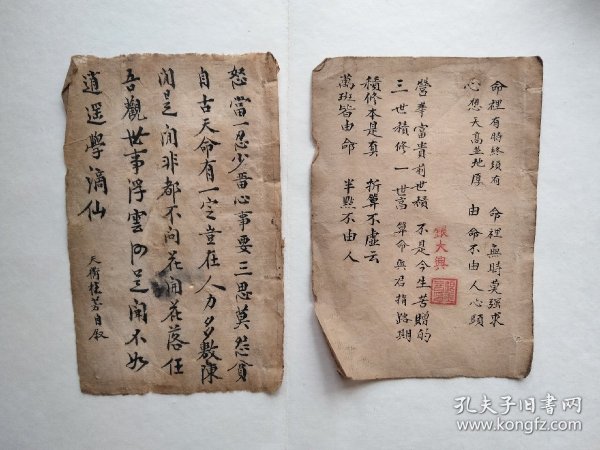 怒當一忍少冒心事要三思莫怨貧
自古天命有一定豈在人力多敷陳
閒是閒非都不問花開花落任
吾觀世事浮雲何足聞不如
逍遥學謫仙
命裡有時終須有 命裡無時莫强求
心想天高並地厚 由命不由人心頭
營華富貴前世積 不是今生苦贈的
三世積修一世富 算命與君指路期
積修本是真 折算不虛云
萬班皆由命 半點不由人
張大興
孔夫子旧书网
www.kongfz.com